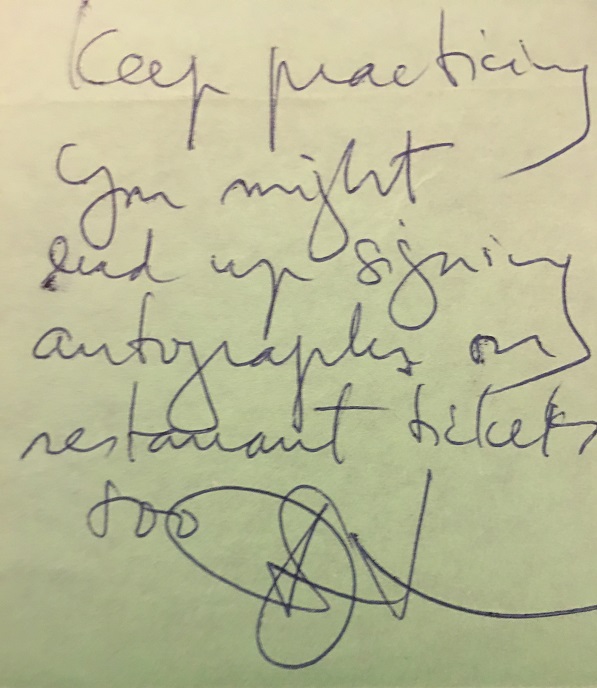 Keep practicing
You might
end up signing
autographs on
restaurant tickets
too